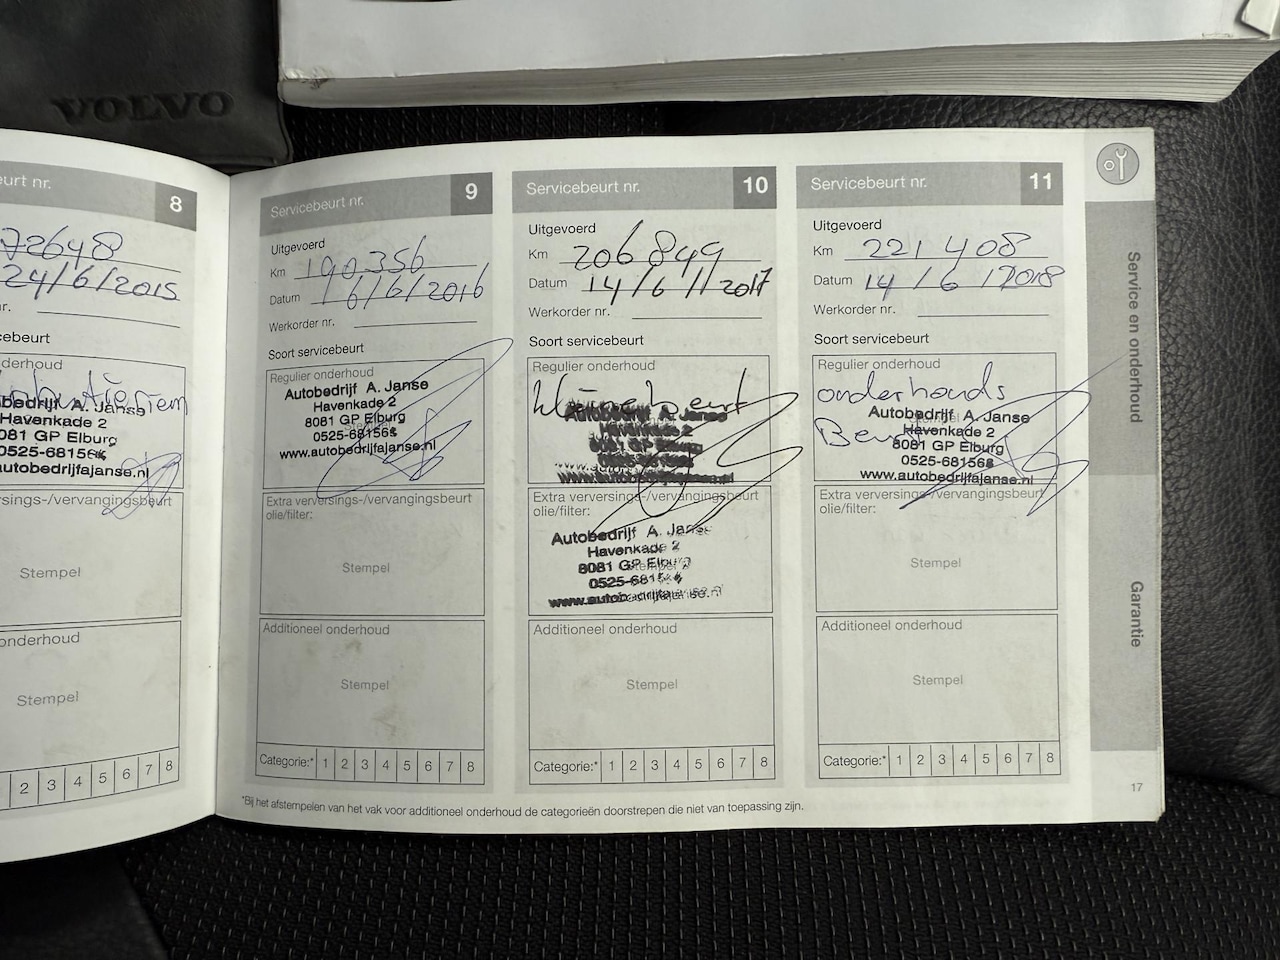 VOLVO
eurt nr. 8
72648
24/6/2015
nr.
cebeurt
derhoud
bedrijf A. Janse
Havenkade 2
081 GP Elburg
0525-681564
autobedrijfajanse.nl
rsings-/vervangingsbeurt
Stempel
onderhoud
Stempel
2 3 4 5 6 7 8
Servicebeurt nr. 9
Uitgevoerd
Km 190.356
Datum 16/6/2016
Werkorder nr.
Soort servicebeurt
Regulier onderhoud
Autobedrijf A. Janse
Havenkade 2
8081 GP Elburg
0525-681564
www.autobedrijfajanse.nl
Extra verversings-/vervangingsbeurt
olie/filter:
Stempel
Additioneel onderhoud
Stempel
Categorie:* 1 2 3 4 5 6 7 8
Servicebeurt nr. 10
Uitgevoerd
Km 206849
Datum 14/6/2017
Werkorder nr.
Soort servicebeurt
Regulier onderhoud
kleine beurt
Autobedrijf A. Janse
Havenkade 2
8081 GP Elburg
www.autobedrijfajanse.nl
Extra verversings-/vervangingsbeurt
olie/filter:
Autobedrijf A. Janse
Havenkade 2
8081 GP Elburg
0525-681564
www.autobedrijfajanse.nl
Additioneel onderhoud
Stempel
Categorie:* 1 2 3 4 5 6 7 8
Servicebeurt nr. 11
Uitgevoerd
Km 221408
Datum 14/6/2018
Werkorder nr.
Soort servicebeurt
Regulier onderhoud
onderhouds
Beurt
Autobedrijf A. Janse
Havenkade 2
8081 GP Elburg
0525-681564
www.autobedrijfajanse.nl
Extra verversings-/vervangingsbeurt
olie/filter:
Stempel
Additioneel onderhoud
Stempel
Categorie:* 1 2 3 4 5 6 7 8
*Bij het afstempelen van het vak voor additioneel onderhoud de categorieën doorstrepen die niet van toepassing zijn.
Service en onderhoud
Garantie
17